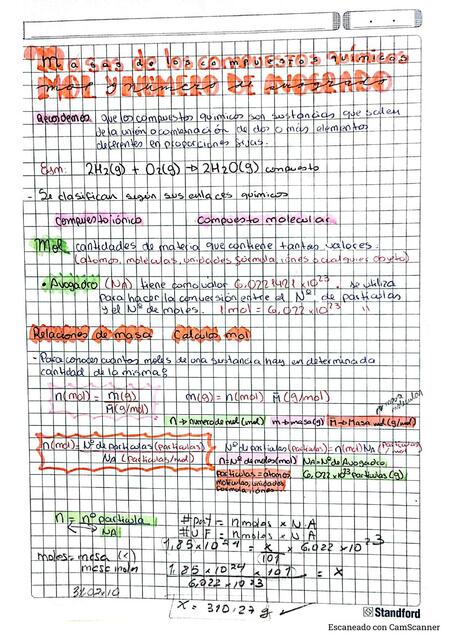 Masas de los compuestos químicos
MOL Y NÚMERO DE AVOGADRO
Recordemos que los compuestos químicos son sustancias que salen
de la unión o combinación de dos o más elementos
diferentes en proporciones fijas.
Ejm: 2H₂(g) + O₂(g) → 2H₂O(g) compuesto
- Se clasifican según sus enlaces químicos
compuesto iónico compuesto molecular
Mol cantidades de materia que contiene tantas valores.
(átomos, moléculas, unidades fórmula, iones o cualquier objeto)
• Avogadro (NA) tiene como valor 6,0221421 x10²³. se utiliza
para hacer la conversión entre el Nº de partículas
y el Nº de moles. 1mol = 6,022 x10²³ "
Relaciones de masa Calculos mol
- Para conocer cuantos moles de una sustancia hay en determinada
cantidad de la misma?
n(mol) = m(g) m(g) = n(mol) M̄(g/mol)
M̄(g/mol)
n → numero de mol (mol) m → masa(g) M̄ → Masa mol (g/mol)
n(mol) = Nº de partículas (partículas) Nº de partículas (partículas) = n(mol) NA
NA (partículas/mol) n = Nº de moles (mol) NA = Nº de Avogadro
partículas = átomos 6,022 x10²³
moléculas, unidades
formula, iones
n = nº partícula
NA
#part = n moles x N.A
# U F = n moles x N.A
1,85 x 10²⁴ = x x 6,022 x 10²³
101
moles = masa
1,85 x 10²⁴ x 101 = x
6,022 x 10²³
x = 310,27 g ✓
Standford
Escaneado con CamScanner